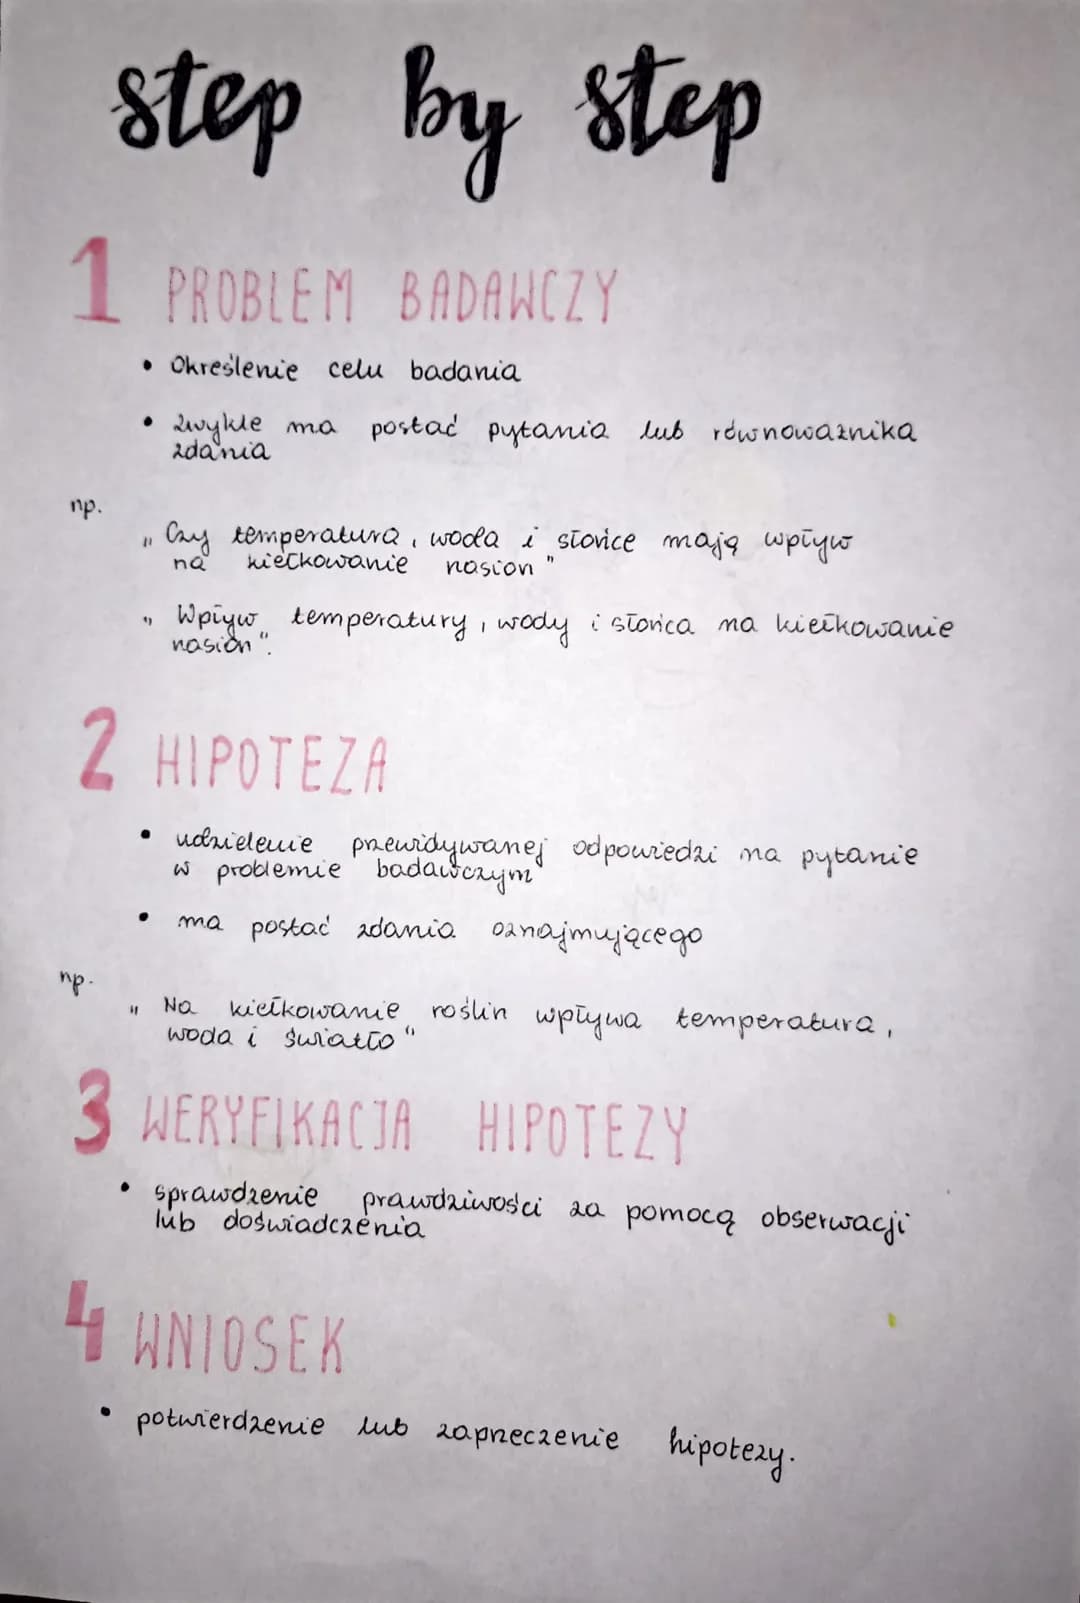 step by step
1 PROBLEM BADAWCZY
• Określenie celu badania
• Zwykle ma postać pytania lub równoważnika
zdania
np.
„Czy temperatura, woda i słońce mają wpływ
na kiełkowanie nasion"
„Wpływ temperatury, wody i słońca na kiełkowanie
nasion".
2 HIPOTEZA
• udzielenie przewidywanej odpowiedzi na pytanie
w problemie badawczym
• ma postać zdania oznajmującego
np.
„Na kiełkowanie roślin wpływa temperatura,
woda i światło"
3 WERYFIKACJA HIPOTEZY
• sprawdzenie prawdziwości za pomocą obserwacji
lub doświadczenia
4 WNIOSEK
• potwierdzenie lub zaprzeczenie hipotezy.